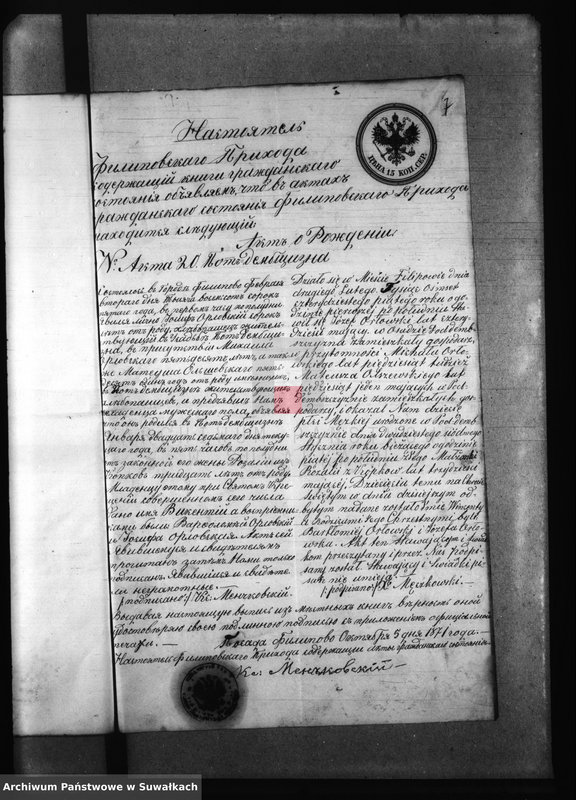 7
ЦѢНА 15 КОП. СЕР.
Настоятель
Филиповскаго Прихода
содержащій книги гражданскаго
состоянія объявляемъ, что въ актахъ
гражданскаго состоянія Филиповскаго Прихода
находится слѣдующій
Актъ о Рожденіи
№ Акта 20.
Состоялось въ Городѣ Филиповѣ Февраля
втораго дня тысяча восемсотъ сорокъ
пятаго года, въ первомъ часу по полудни
Явился лично Іосифъ Орловскій сорокъ
лѣтъ отъ роду
въ присутствіи Михаила
Орловскаго пятьдесятъ лѣтъ, а также
Матеуша Ольшевскаго
десятъ одинъ годъ отъ роду имѣющихъ,
и предъявилъ Намъ
младенца мужескаго пола, объявляя
что онъ родился въ
Января двадцать седьмаго дня текущаго
года, въ пять часовъ по полудни
отъ законной его жены Розаліи
тридцать лѣтъ отъ роду
Младенцу этому при Святомъ Крещеніи
совершенномъ сего числа
дано имя Викентій а воспріемниками
были Варѳоломей Орловскій
и Іозефа Орловская. Актъ сей
и свидѣтелямъ
прочитанъ затѣмъ Нами только
подписанъ. Явившійся и свидѣтели
неграмотные.
(подписано) Кс. Менчковскій.
Działo się w Mieście Filipowie dnia
drugiego Lutego Tysiąc Osmset
czterdziestego piątego roku o godzinie
pierwszej po południu Stawił
się Józef Orłowski lat czterdzieści
mający,
zamieszkały
w przytomności Michała Orłowskiego
lat pięćdziesiąt tudzież
Mateusza Olszewskiego lat
piędziesiąt jeden mających w
zamieszkałych
i okazał Nam dziecię
płci Męzkiej urodzone w
dnia dwudziestego siódmego
Stycznia roku bieżącego o godzinie
piątej po południu z Jego Małżonki
Rozalii z lat trzydzieści
mającej. Dziecięciu temu na Chrzcie
Świętym w dniu dzisiejszym odbytym
nadane zostało Imię Wincenty
a Rodzicami Jego Chrzestnymi byli
Bartłomiej Orłowski i Józefa Orłowska.
Akt ten Stawającym i Świadkom
przeczytany i przez Nas podpisany
został, Stawający i Świadki pisać
nie umieją.
(podpisano) X. Męczkowski.
Выдавая настоящую выпись изъ мѣстныхъ книгъ вѣрность оной
удостовѣряю своею подлинною подписью съ приложеніемъ оффиціальной
печати. — Посадъ Филипово Октября 5 дня 1871 года. —
Настоятель Филиповскаго Прихода содержащій акты гражданскаго состоянія.
Кс: Менчковскій —
Archiwum Państwowe w Suwałkach